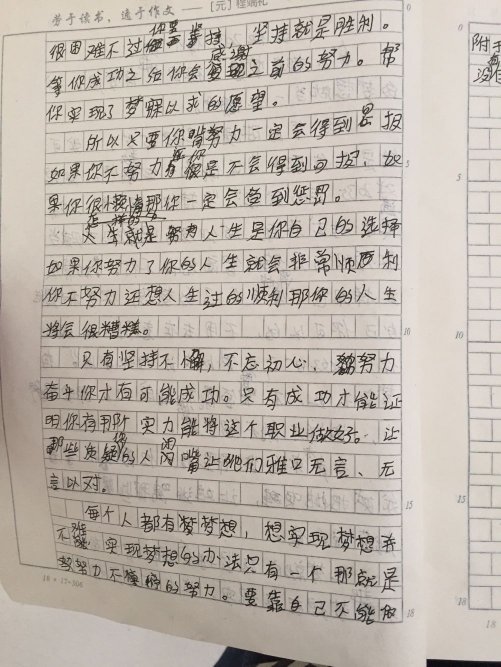 劳于读书，逸于作文 —— [元] 程端礼
很困难不过你要坚持，坚持就是胜利。
等你成功之后你会感谢之前的努力。帮
你实现了梦寐以求的愿望。
所以只要你努力一定会得到回报
如果你不努力那你是不会得到回报，如
果你很懒惰那你一定会受到惩罚。
人生就是努力人生是你自己的选择
如果你努力了你的人生就会非常顺利
你不努力还想人生过的顺利那你的人生
将会很糟糕。
只有坚持不懈，不忘初心，努力
奋斗你才有可能成功。只有成功才能证
明你有那个实力能将这个职业做好。让
那些质疑你的人闭嘴让他们哑口无言、无
言以对。
每个人都有梦想，想实现梦想并
不难实现梦想的办法只有一个那就是
努力不懈的努力。要靠自己不能做
18×17=306
5
10
15
18
附
没
0
5
10
15
18